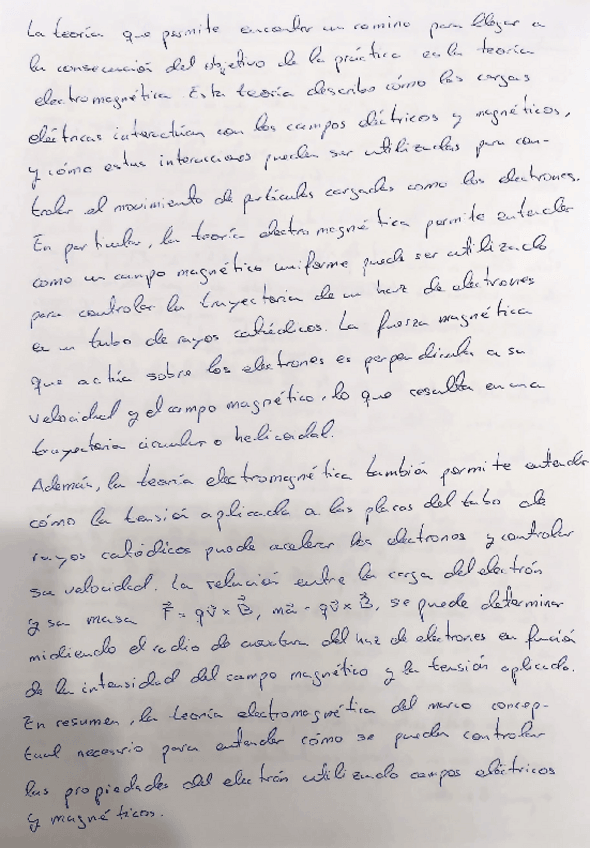 La teoría que permite encontrar un camino para llegar a
la consecución del objetivo de la práctica es la teoría
electromagnética. Esta teoría describe cómo las cargas
eléctricas interactúan con los campos eléctricos y magnéticos,
y cómo estas interacciones pueden ser utilizadas para con-
trolar el movimiento de partículas cargadas como los electrones.
En particular, la teoría electromagnética permite entender
como un campo magnético uniforme puede ser utilizado
para controlar la trayectoria de un haz de electrones
en un tubo de rayos catódicos. La fuerza magnética
que actúa sobre los electrones es perpendicular a su
velocidad y el campo magnético, lo que resulta en una
trayectoria circular o helicoidal.
Además, la teoría electromagnética también permite entender
cómo la tensión aplicada a las placas del tubo de
rayos catódicos puede acelerar los electrones y controlar
su velocidad. La relación entre la carga del electrón
y su masa F⃗ = qv⃗ × B⃗, ma⃗ = qv⃗ × B⃗, se puede determinar
midiendo el radio de curvatura del haz de electrones en función
de la intensidad del campo magnético y la tensión aplicada.
En resumen, la teoría electromagnética del marco concep-
tual necesario para entender cómo se pueden controlar
las propiedades del electrón utilizando campos eléctricos
y magnéticos.